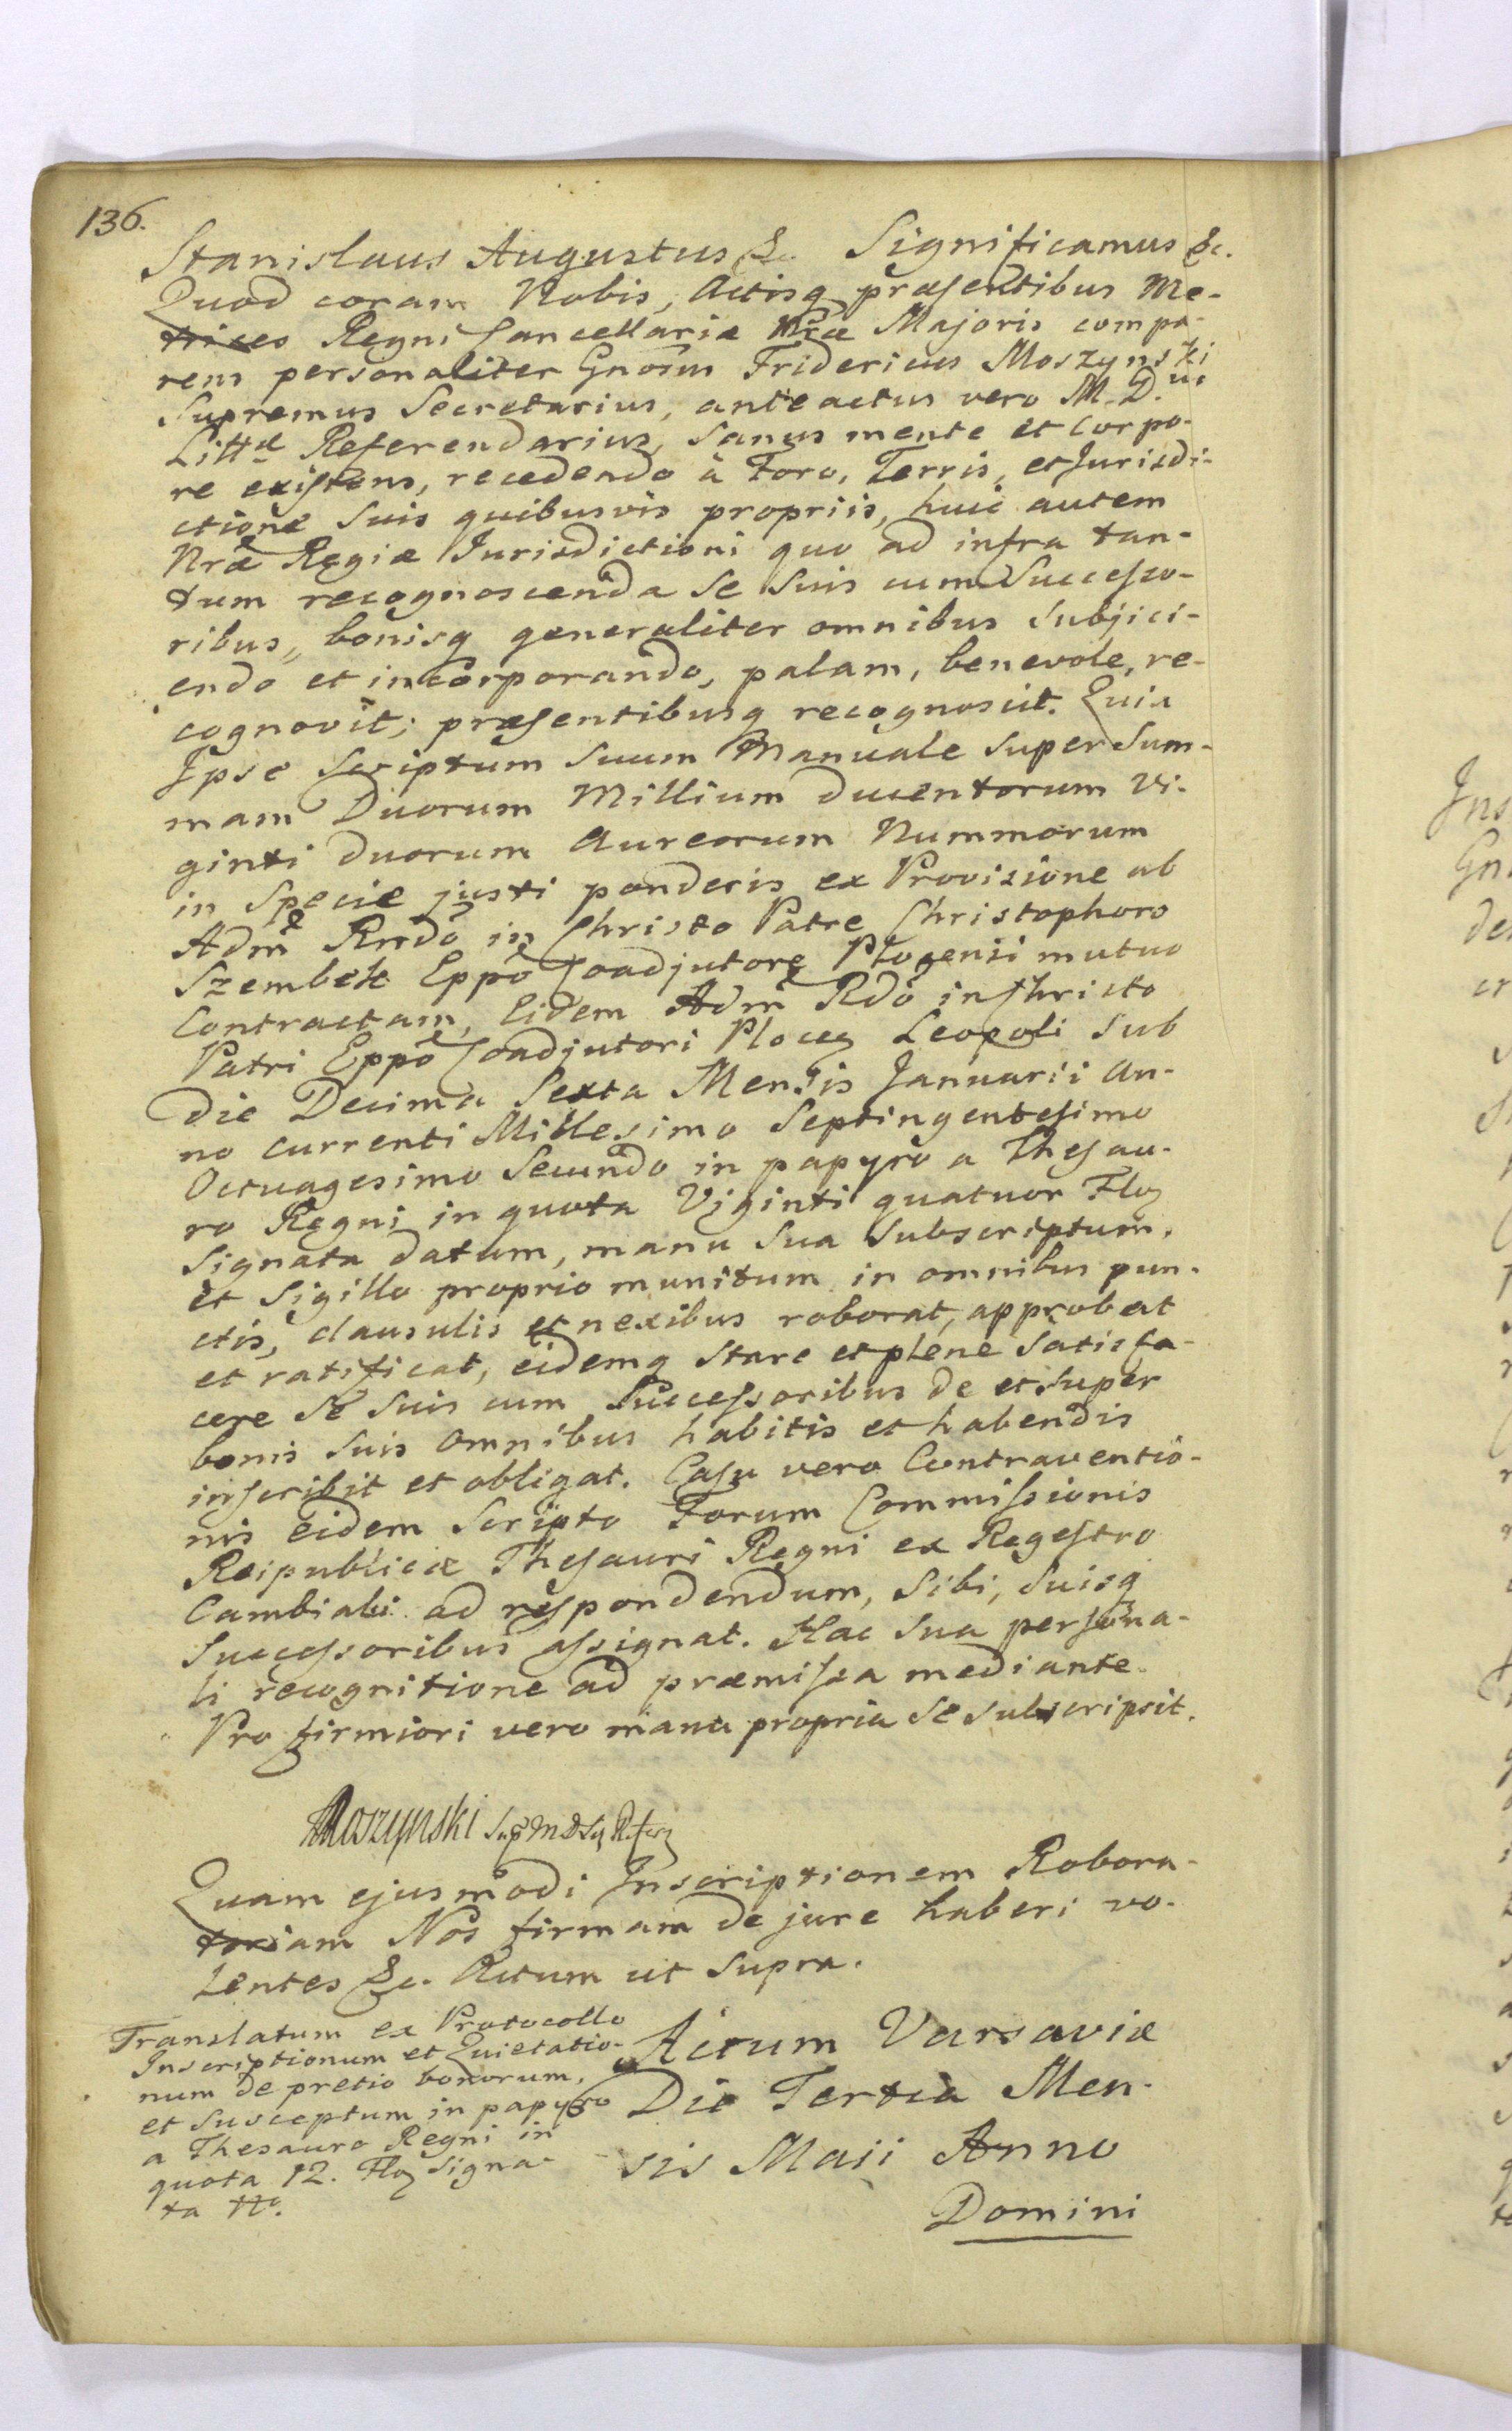 136.
Stanislaus Augustus &c. Significamus &c.
Quod coram Nobis, Actisq præsentibus Me-
trices Regni Cancellariæ Nræ Majoris compa-
rens personaliter Gnosus Fridericus Moszynski
Supremus Secretarius, anteactus vero M. D. us
Littæ Referendarius, Sanus mente et Corpo-
re existens, recedendo à Foro, Terris, et Jurisdi-
ctione Suis quibusvis propriis, huic autem
Nræ Regiæ Jurisdictioni quo ad infra tan-
tum recognoscenda Se Suis cum Successo-
ribus, bonisq generaliter omnibus Subjici-
endo et incorporando, palam, benevole, re-
cognovit; præsentibusq recognoscit. Quia
Ipse Scriptum Suum Manuale Super Sum-
mam Duorum Millium ducentorum Vi-
ginti duorum Aureorum Nummorum
in Specie justi ponderis ex Provisione ab
Adm Rndo in Christo Patre Christophoro
Szembek Eppo Coadjutore Plocensi mutuo
Contractam, Eidem Adm Rdo in Christo
Patri Eppo Coadjutori Plocen Leopoli Sub
die Decima Sexta Mensis Januarii An-
no currenti Millesimo Septingentesimo
Octuagesimo Secundo in papyro a Thesau-
ro Regni in quota Viginti quatuor Flo
Signata datum, manu Sua Subscriptum,
et Sigillo proprio munitum in omnibus pun-
ctis, clausulis et nexibus roborat, approbat
et ratificat, eidemq Stare et plene Satisfa-
cere Se Suis cum Successoribus de et Super
bonis Suis Omnibus habitis et habendis
inscribit et obligat. Casu vero Contraventio-
nis eidem Scripto Forum Commissionis
Reipublicæ Thesauri Regni ex Regestro
Cambiali ad respondendum, Sibi, Suisq
Successoribus assignat. Hac Sua persona-
li recognitione ad præmissa mediante.
Pro firmiori vero manu propria Se Subscripsit.
FMoszynski
Quam ejusmodi Inscriptionem Robora-
toriam Nos firmam de jure haberi vo-
lentes &c. Actum ut Supra.
Translatum ex Protocollo
Inscriptionum et Quietatio-
num de pretio bonorum,
et Susceptum in papyro
a Thesauro Regni in
quota 12. Flo Signa-
ta tto.
Actum Varsaviæ
Die Tertia Men-
sis Maji Anno
Domini